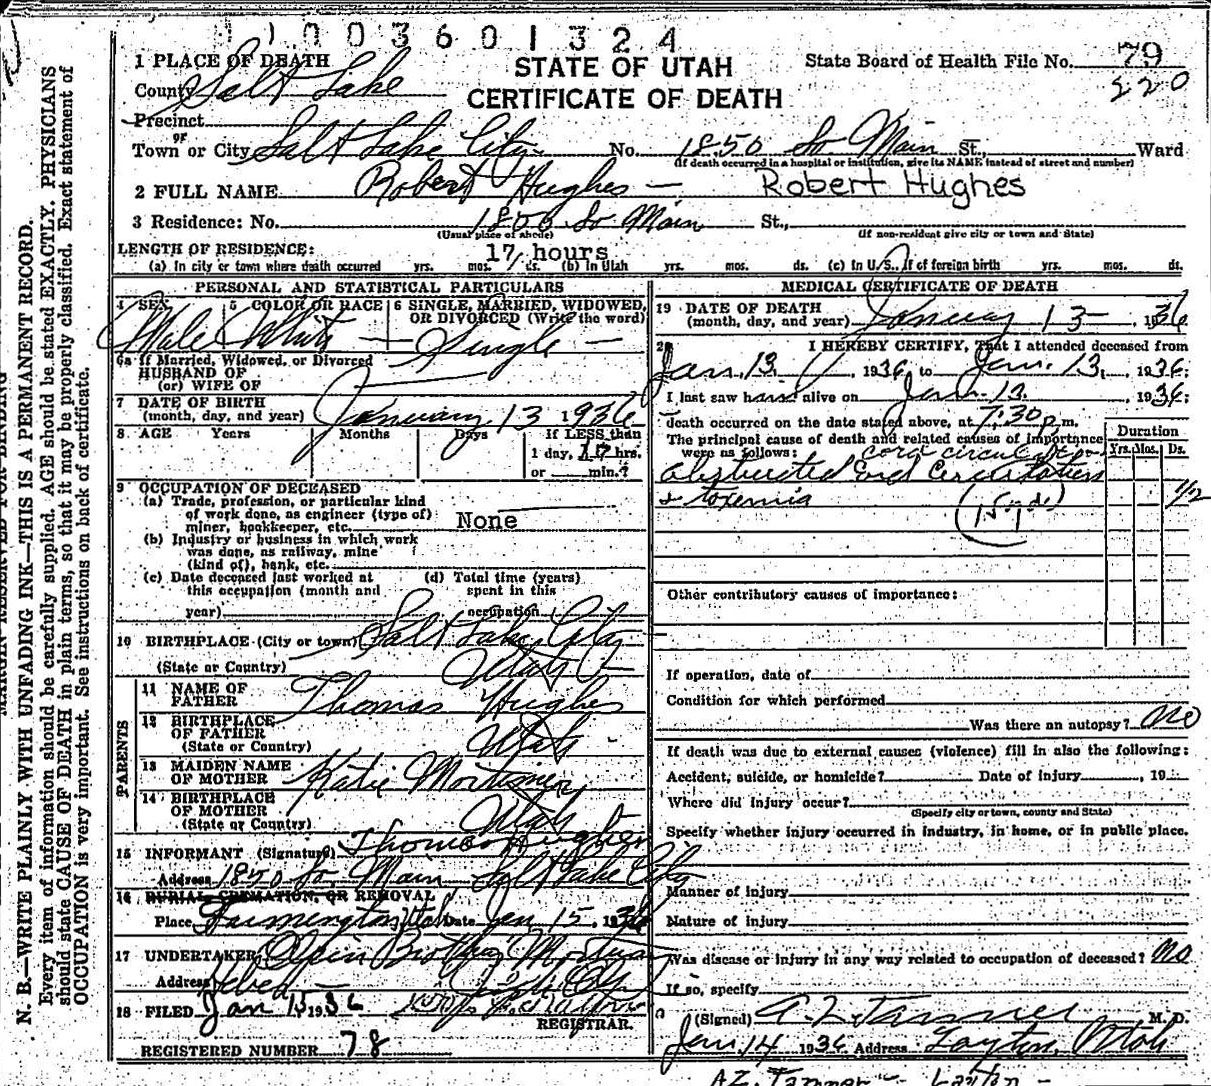 1100360 1324
1 PLACE OF DEATH
STATE OF UTAH
State Board of Health File No. 79
County Salt Lake
CERTIFICATE OF DEATH
220
Precinct
or
Town or City Salt Lake City No. 1850 So Main St., Ward
(If death occurred in a hospital or institution, give its NAME instead of street and number)
2 FULL NAME Robert Hughes — Robert Hughes
3 Residence: No. 1850 So Main St.,
(Usual place of abode) (If non-resident give city or town and State)
LENGTH OF RESIDENCE: 17 hours
(a) In city or town where death occurred yrs. mos. ds. (b) In Utah yrs. mos. ds. (c) In U.S., if of foreign birth yrs. mos. ds.
PERSONAL AND STATISTICAL PARTICULARS
4 SEX 5 COLOR OR RACE 6 SINGLE, MARRIED, WIDOWED,
OR DIVORCED (Write the word)
Male White — Single —
6a If Married, Widowed, or Divorced
HUSBAND OF
(or) WIFE OF
7 DATE OF BIRTH
(month, day, and year) January 13 1936
8 AGE Years Months Days If LESS than
1 day, 17 hrs.
or min.?
9 OCCUPATION OF DECEASED
(a) Trade, profession, or particular kind
of work done, as engineer (type of)
miner, bookkeeper, etc. None
(b) Industry or business in which work
was done, as railway, mine
(kind of), bank, etc.
(c) Date deceased last worked at (d) Total time (years)
this occupation (month and spent in this
year) occupation
10 BIRTHPLACE (City or town) Salt Lake City
(State or Country) Utah
PARENTS
11 NAME OF
FATHER Thomas Hughes
12 BIRTHPLACE
OF FATHER
(State or Country) Utah
13 MAIDEN NAME
OF MOTHER Katie Mortimer
14 BIRTHPLACE
OF MOTHER
(State or Country) Utah
15 INFORMANT (Signature) Thomas Hughes
Address 1850 So. Main Salt Lake City
16 BURIAL, CREMATION, OR REMOVAL
Place Farmington Utah Date Jan 15, 1936
17 UNDERTAKER
Address
18 FILED Jan 15 1936
REGISTRAR.
REGISTERED NUMBER 78
MEDICAL CERTIFICATE OF DEATH
19 DATE OF DEATH
(month, day, and year) January 13 , 1936
20 I HEREBY CERTIFY, That I attended deceased from
Jan. 13, 1936, to Jan. 13, 1936;
I last saw h alive on Jan. 13, 1936;
death occurred on the date stated above, at 7:30 p.m.
The principal cause of death and related causes of importance
were as follows:
Duration
Yrs. Mos. Ds.
obstructed cord circulation
& toxemia 1/2
Other contributory causes of importance:
If operation, date of
Condition for which performed
Was there an autopsy? No
If death was due to external causes (violence) fill in also the following:
Accident, suicide, or homicide? Date of injury , 19
Where did injury occur?
(Specify city or town, county and State)
Specify whether injury occurred in industry, in home, or in public place.
Manner of injury
Nature of injury
Was disease or injury in any way related to occupation of deceased? No
If so, specify
(Signed) A Z Tanner M. D.
Jan. 14 1936 Address Layton, Utah
AZ. Tanner — Layton —
N. B.—WRITE PLAINLY WITH UNFADING INK—THIS IS A PERMANENT RECORD.
Every item of information should be carefully supplied. AGE should be stated EXACTLY. PHYSICIANS
should state CAUSE OF DEATH in plain terms, so that it may be properly classified. Exact statement of
OCCUPATION is very important. See instructions on back of certificate.